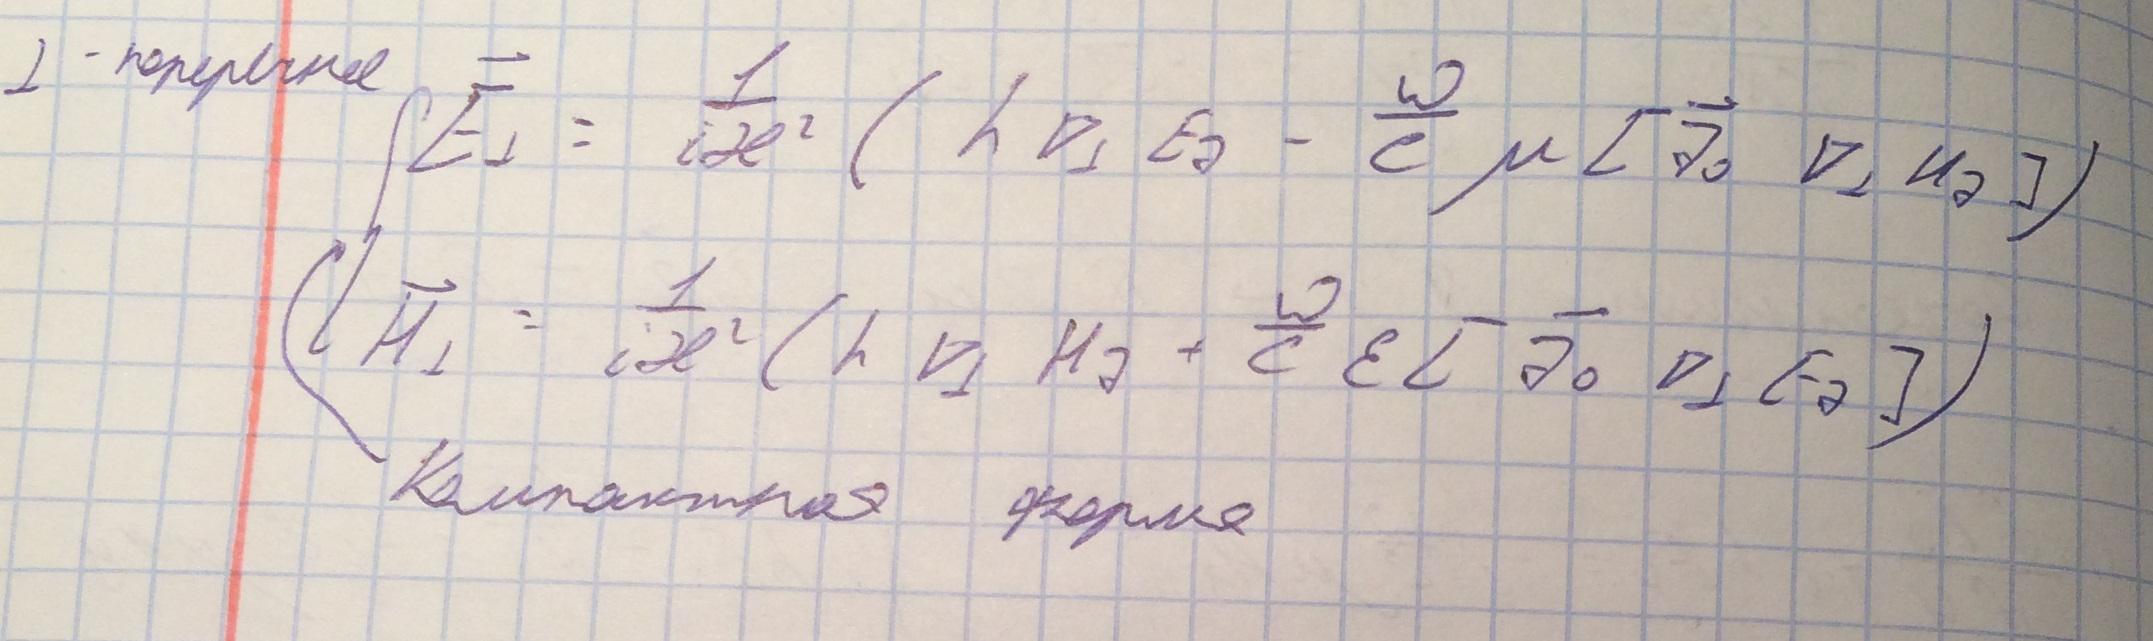 ⊥ - поперечное
E⃗⊥ = 1/(iæ²) (h ∇⊥ Ez - ω/c μ [z⃗₀ ∇⊥ Hz])
H⃗⊥ = 1/(iæ²) (h ∇⊥ Hz + ω/c ε [z⃗₀ ∇⊥ Ez])
Компактная форма